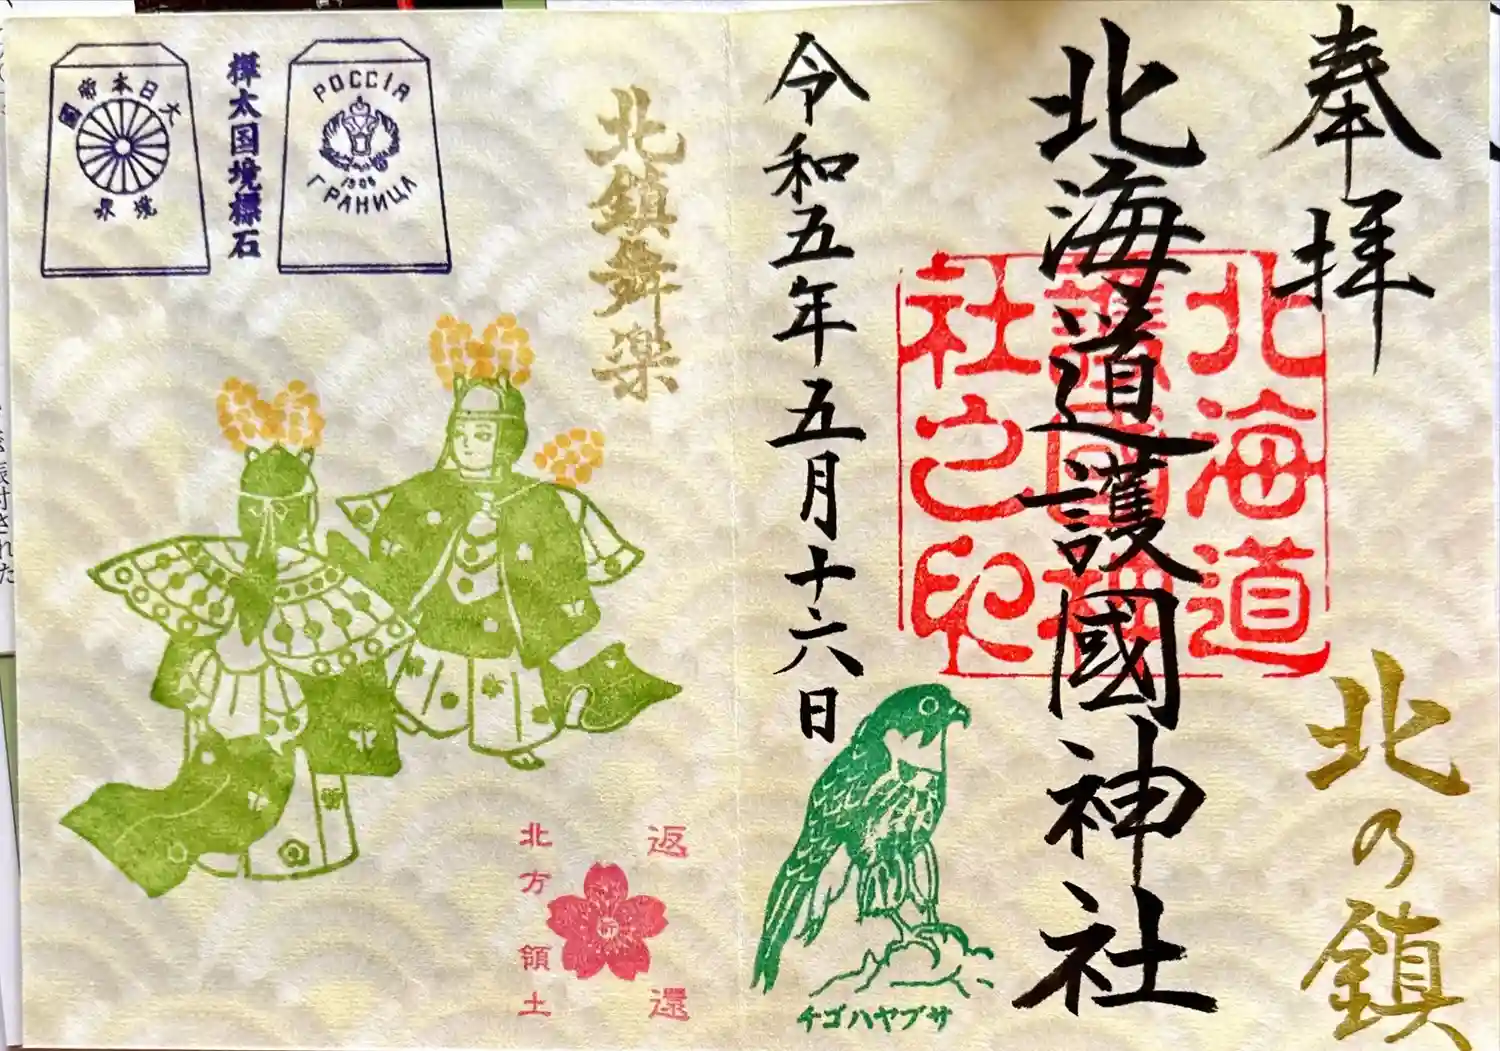 奉拝
北の鎮
北海道護國神社
北海道
護國神
社之印
令和五年五月十六日
チゴハヤブサ
北鎮舞楽
返還
北方領土
РОССІЯ
1906
ГРАНИЦА
樺太国境標石
大日本帝國
境界